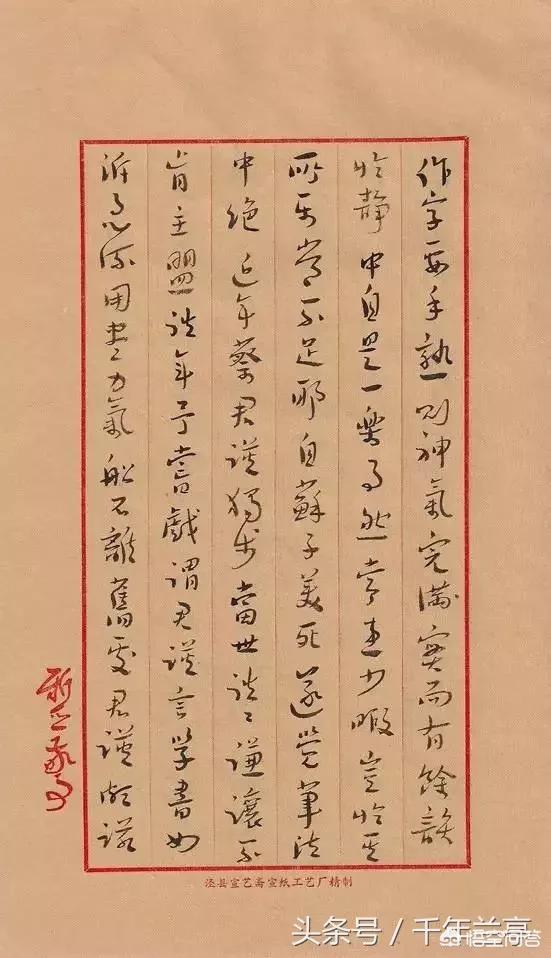 作字要手熟則神氣完滿實而有餘韻
於靜中自是一樂事然常患少暇豈於其
所樂常不足耶自蘇子美死遂覺筆法
中絕近年蔡君謨獨步當世往往謙讓不
肯主盟往年予嘗戲謂君謨言學書如
泝急流用盡力氣船不離舊處君謨頗諾
泾县宣艺斋宣纸工艺厂精制
头条号 / 千年兰亭
悟空问答